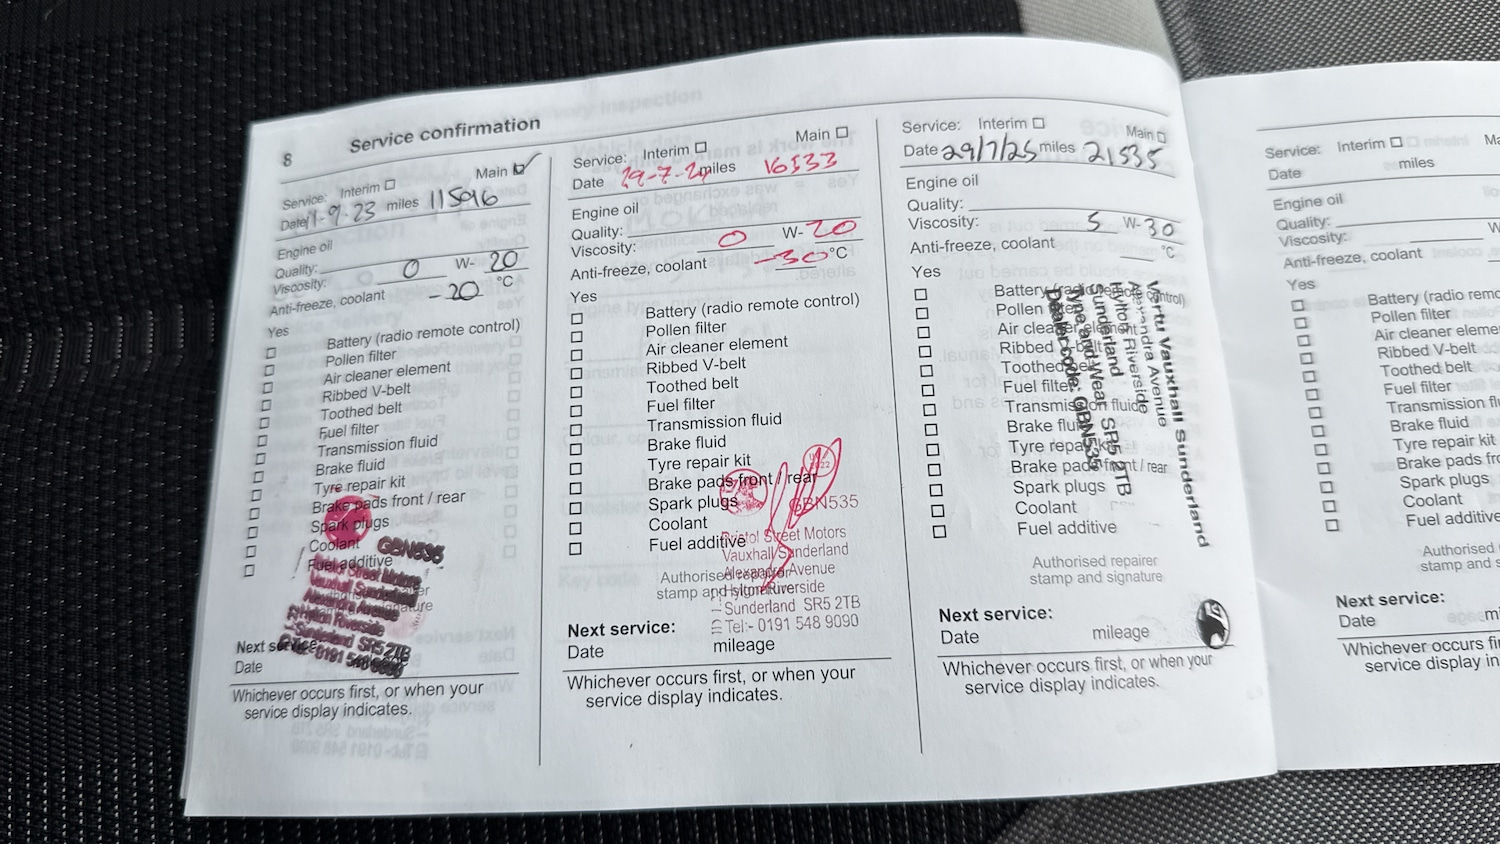 8 Service confirmation
Service: Interim Main
Date 1-9.23 miles 11596
Engine oil
Quality:
Viscosity: 0 W- 20
Anti-freeze, coolant -20 °C
Yes
Battery (radio remote control)
Pollen filter
Air cleaner element
Ribbed V-belt
Toothed belt
Fuel filter
Transmission fluid
Brake fluid
Tyre repair kit
Brake pads front / rear
Spark plugs
Coolant
Fuel additive
GBN535
Bristol Street Motors
Vauxhall Sunderland
Alexandra Avenue
Hylton Riverside
Sunderland SR5 2TB
0191 548 9090
Next service:
Date
Whichever occurs first, or when your
service display indicates.
Service: Interim Main
Date 29-7-24 miles 16533
Engine oil
Quality:
Viscosity: 0 W- 20
Anti-freeze, coolant -30 °C
Yes
Battery (radio remote control)
Pollen filter
Air cleaner element
Ribbed V-belt
Toothed belt
Fuel filter
Transmission fluid
Brake fluid
Tyre repair kit
Brake pads front / rear
Spark plugs
Coolant
Fuel additive
GBN535
Bristol Street Motors
Vauxhall Sunderland
Alexandra Avenue
Hylton Riverside
Sunderland SR5 2TB
Tel:- 0191 548 9090
Authorised repairer
stamp and signature
Next service:
Date mileage
Whichever occurs first, or when your
service display indicates.
Service: Interim Main
Date 29/7/25 miles 21535
Engine oil
Quality:
Viscosity: 5 W- 30
Anti-freeze, coolant °C
Yes
Battery (radio remote control)
Pollen filter
Air cleaner element
Ribbed V-belt
Toothed belt
Fuel filter
Transmission fluid
Brake fluid
Tyre repair kit
Brake pads front / rear
Spark plugs
Coolant
Fuel additive
Vertu Vauxhall Sunderland
Alexandra Avenue
Hylton Riverside
Sunderland
Tyne and Wear SR5 2TB
Dealer code: GBN535
Authorised repairer
stamp and signature
Next service:
Date mileage
Whichever occurs first, or when your
service display indicates.
Service: Interim
Date miles
Engine oil
Quality:
Viscosity:
Anti-freeze, coolant
Yes
Battery (radio
Pollen filter
Air cleaner
Ribbed V-belt
Toothed belt
Fuel filter
Transmission
Brake fluid
Tyre repair kit
Brake pads
Spark plugs
Coolant
Fuel additive
Authorised
stamp and
Next service:
Date
Whichever occurs
service display